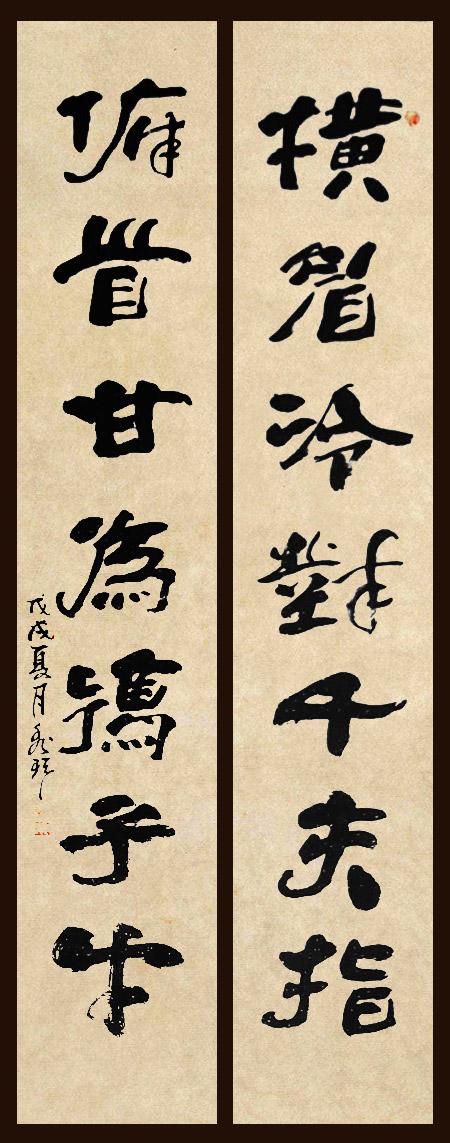 橫眉冷對千夫指
俯首甘為孺子牛
戊戌夏月